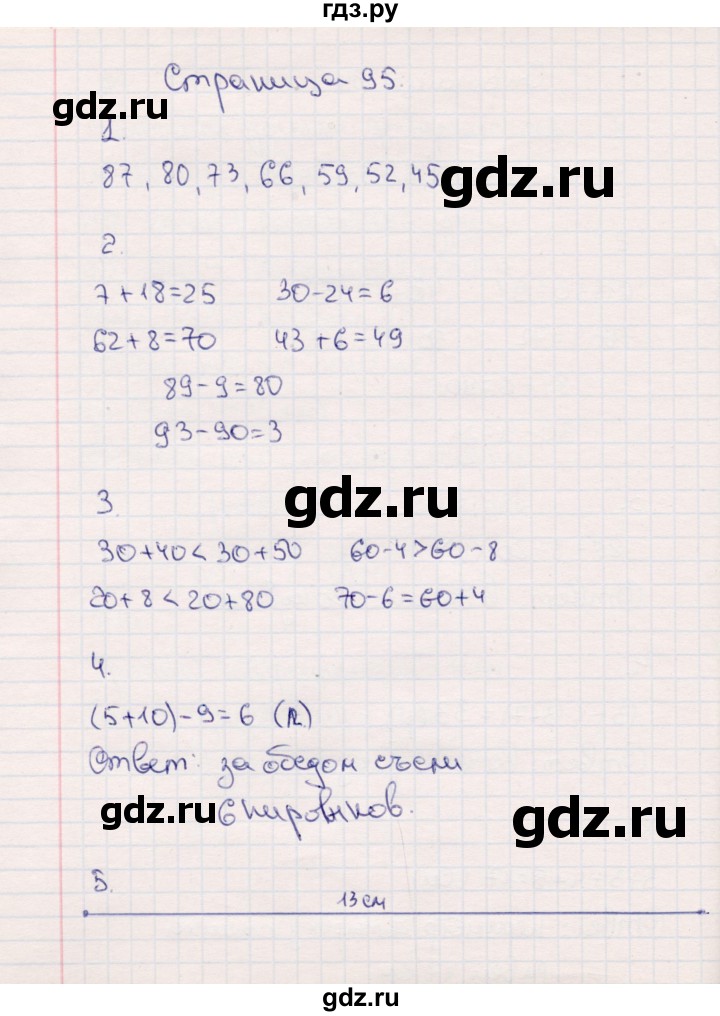 гдз.ру
Страница 95.
gdz.ru
1.
87, 80, 73, 66, 59, 52, 45
gdz.ru
2.
7+18=25 30-24=6
62+8=70 43+6=49
89-9=80
93-90=3
gdz.ru
3.
30+40<30+50 60-4>60-8
20+8<20+80 70-6=60+4
4.
(5+10)-9=6 (п.)
Ответ: за обедом съели
6 пирожков.
gdz.ru
gdz.ru
5.
13 см
gdz.ru